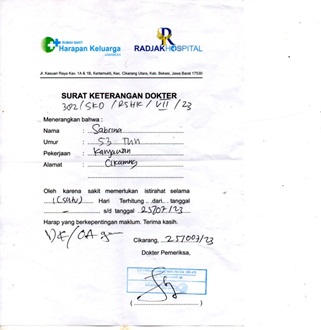 RUMAH SAKIT
Harapan Keluarga
RADJAK HOSPITAL
Jl. Kasuari Raya Kav. 1A & 1B, Kertamukti, Kec. Cikarang Utara, Kab. Bekasi, Jawa Barat 17530
SURAT KETERANGAN DOKTER
302/SKD/RSHK/VII/23
Menerangkan bahwa :
Nama : Sabrina
Umur : 53 Thn
Pekerjaan : Karyawan
Alamat : Cikarang
Oleh karena sakit memerlukan istirahat selama
1 (Satu) Hari Terhitung dari tanggal
- s/d tanggal 25/07/23
Harap yang berkepentingan maklum. Terima kasih.
Cikarang, 25/007/23
Dokter Pemeriksa,
( )